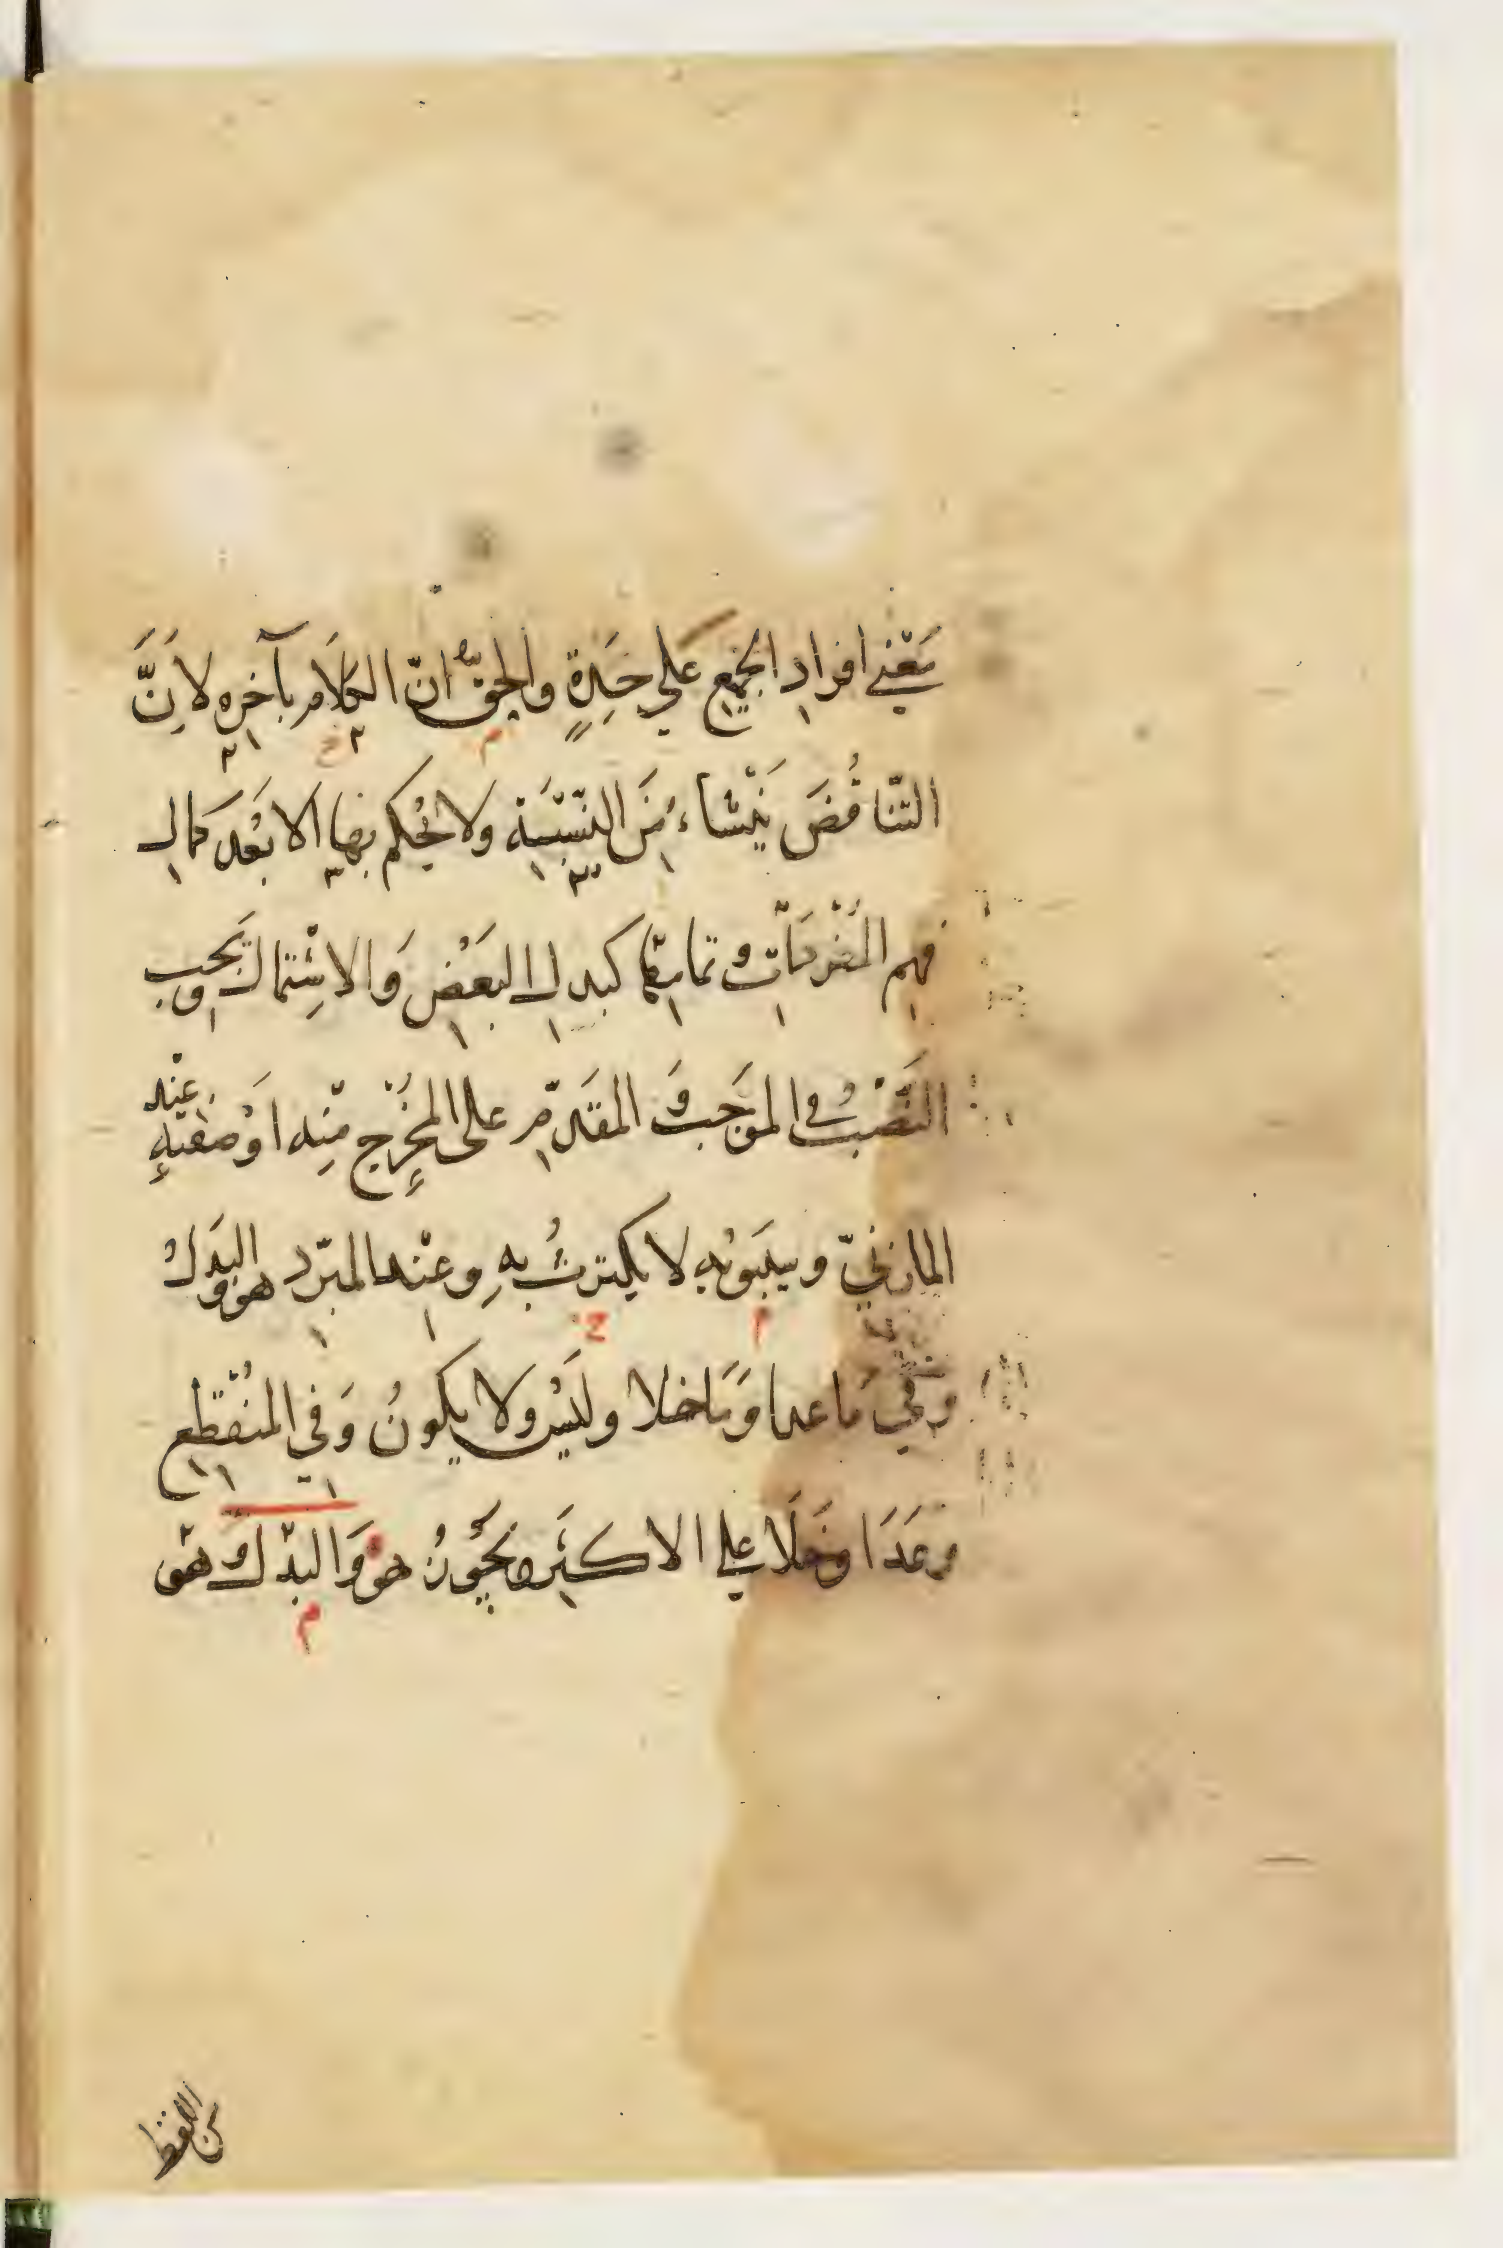 معنى افراد الجميع على حدة والحق انّ الكلام بآخره لاَنَّ
التناقُضَ ينشاء مِنَ النسبة ولا يحكم بها الا بَعْد كمال
فهم المفردات وتمامها كبدل البَعْض وَالاشتمال ويجب
النَّصْب في الموجَب وَ المقدّم على المخرج مِنْه اوْ صفته عند
المازنيّ وسيبويه لا يكترثُ بهِ وعنْد المبرّد هو والبدَل
وفي مَا عدا وَمَا خلا وليْس ولا يكونُ وَفي المنْقطع
وعَدَا وخَلَا على الاكثر ويجوز هو وَالبدل وهو
من اللفظ